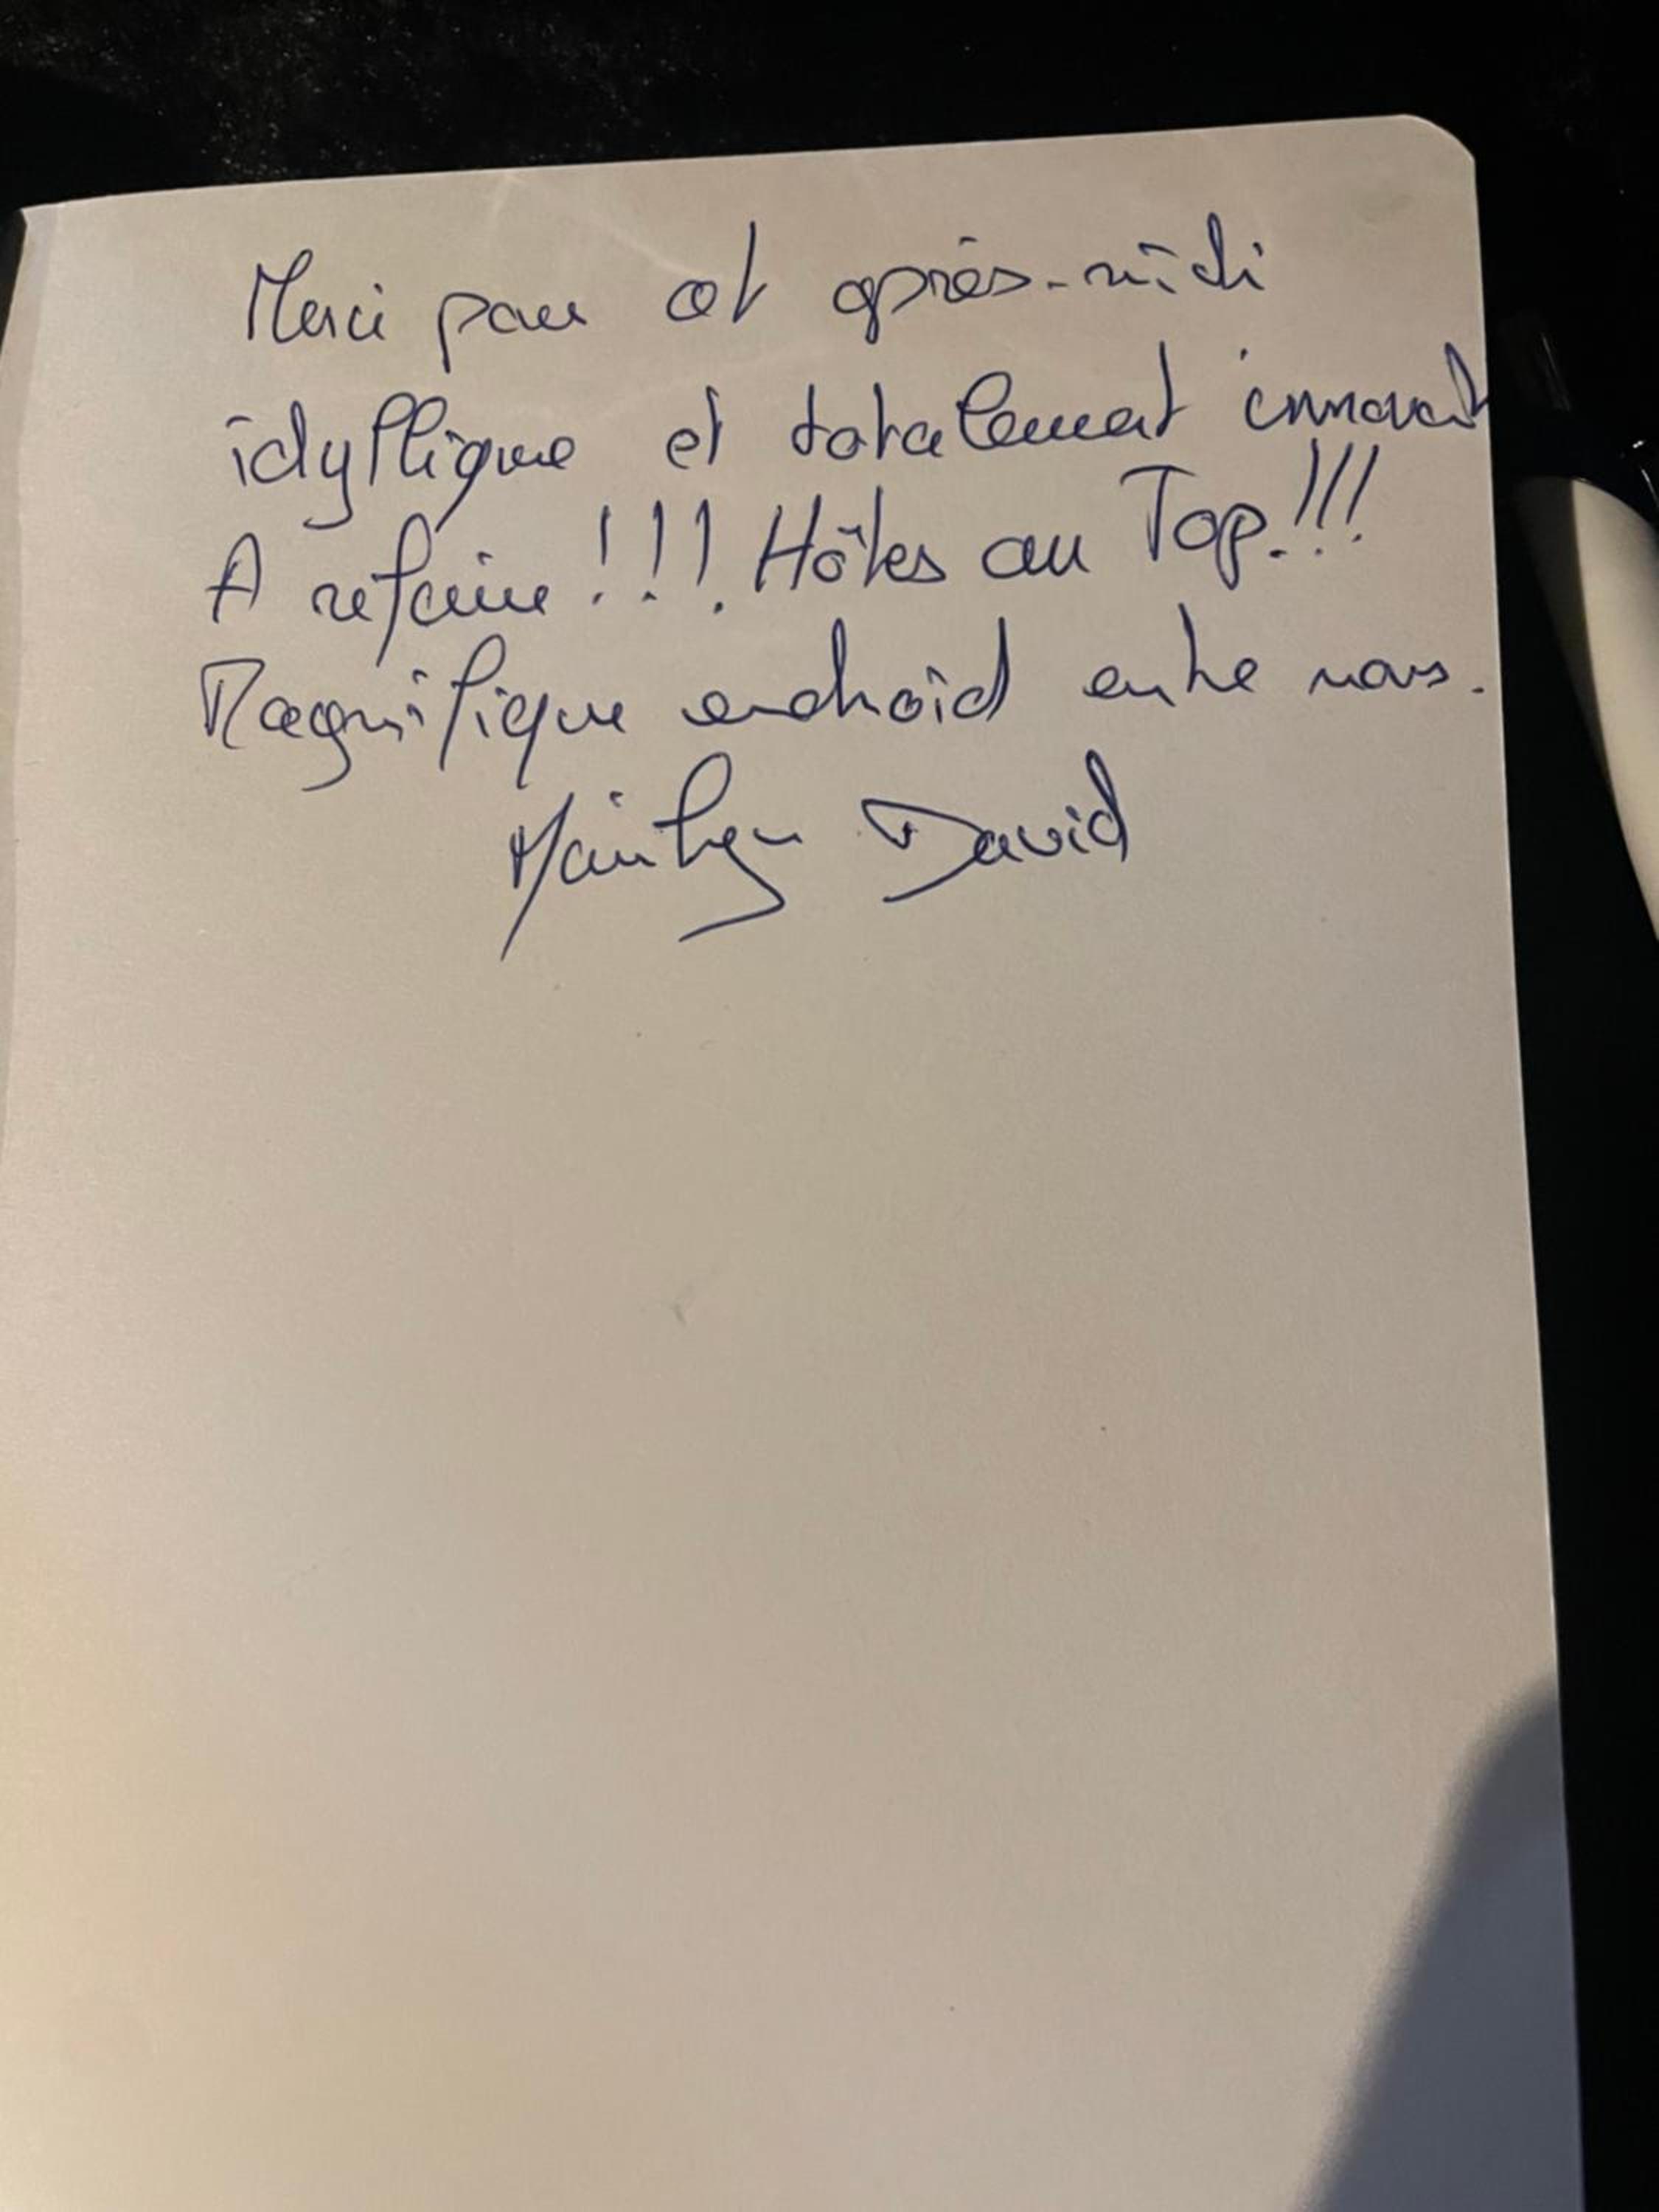 Merci pour cet après-midi
idyllique et totalement innovant
A refaire !!! Hôtes au Top.!!!
Magnifique endroid entre nous.
Marilyn David